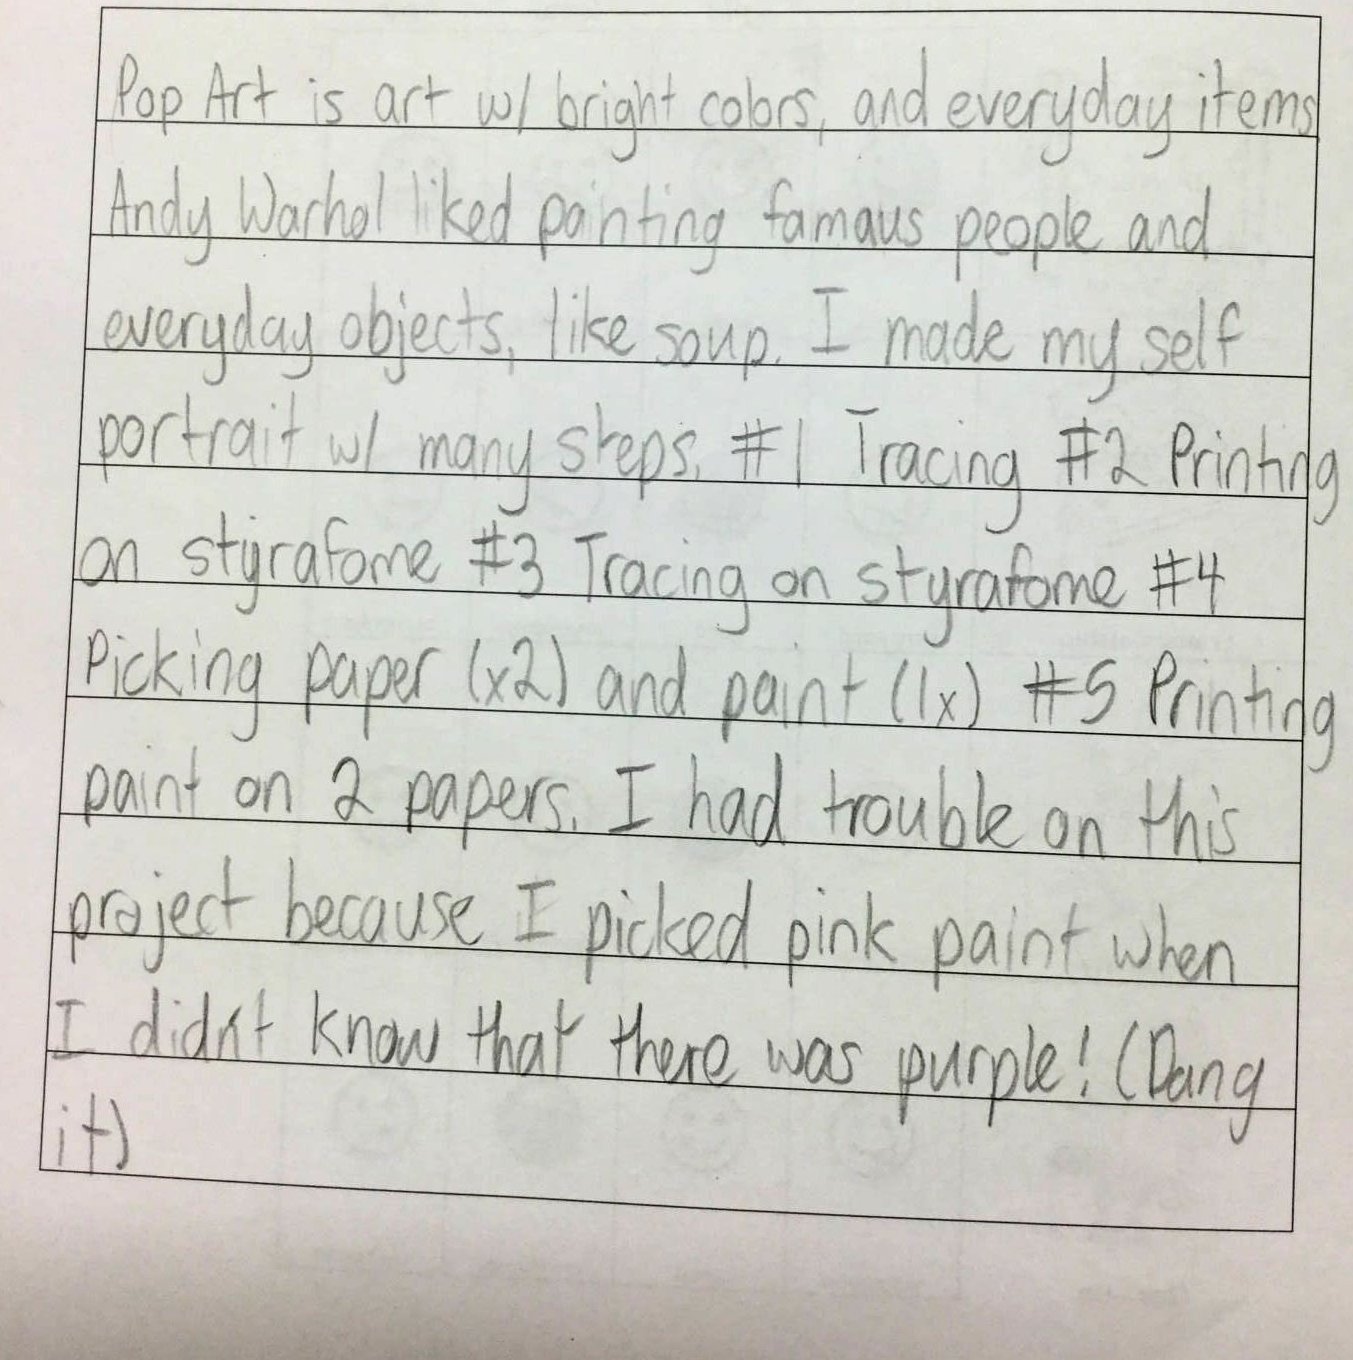 Pop Art is art w/ bright colors, and everyday items
Andy Warhol liked painting famous people and
everyday objects, like soup. I made my self
portrait w/ many steps. #1 Tracing #2 Printing
on styrafome #3 Tracing on styrafome #4
Picking paper (x2) and paint (1x) #5 Printing
paint on 2 papers. I had trouble on this
project because I picked pink paint when
I didn't know that there was purple! (Dang
it)